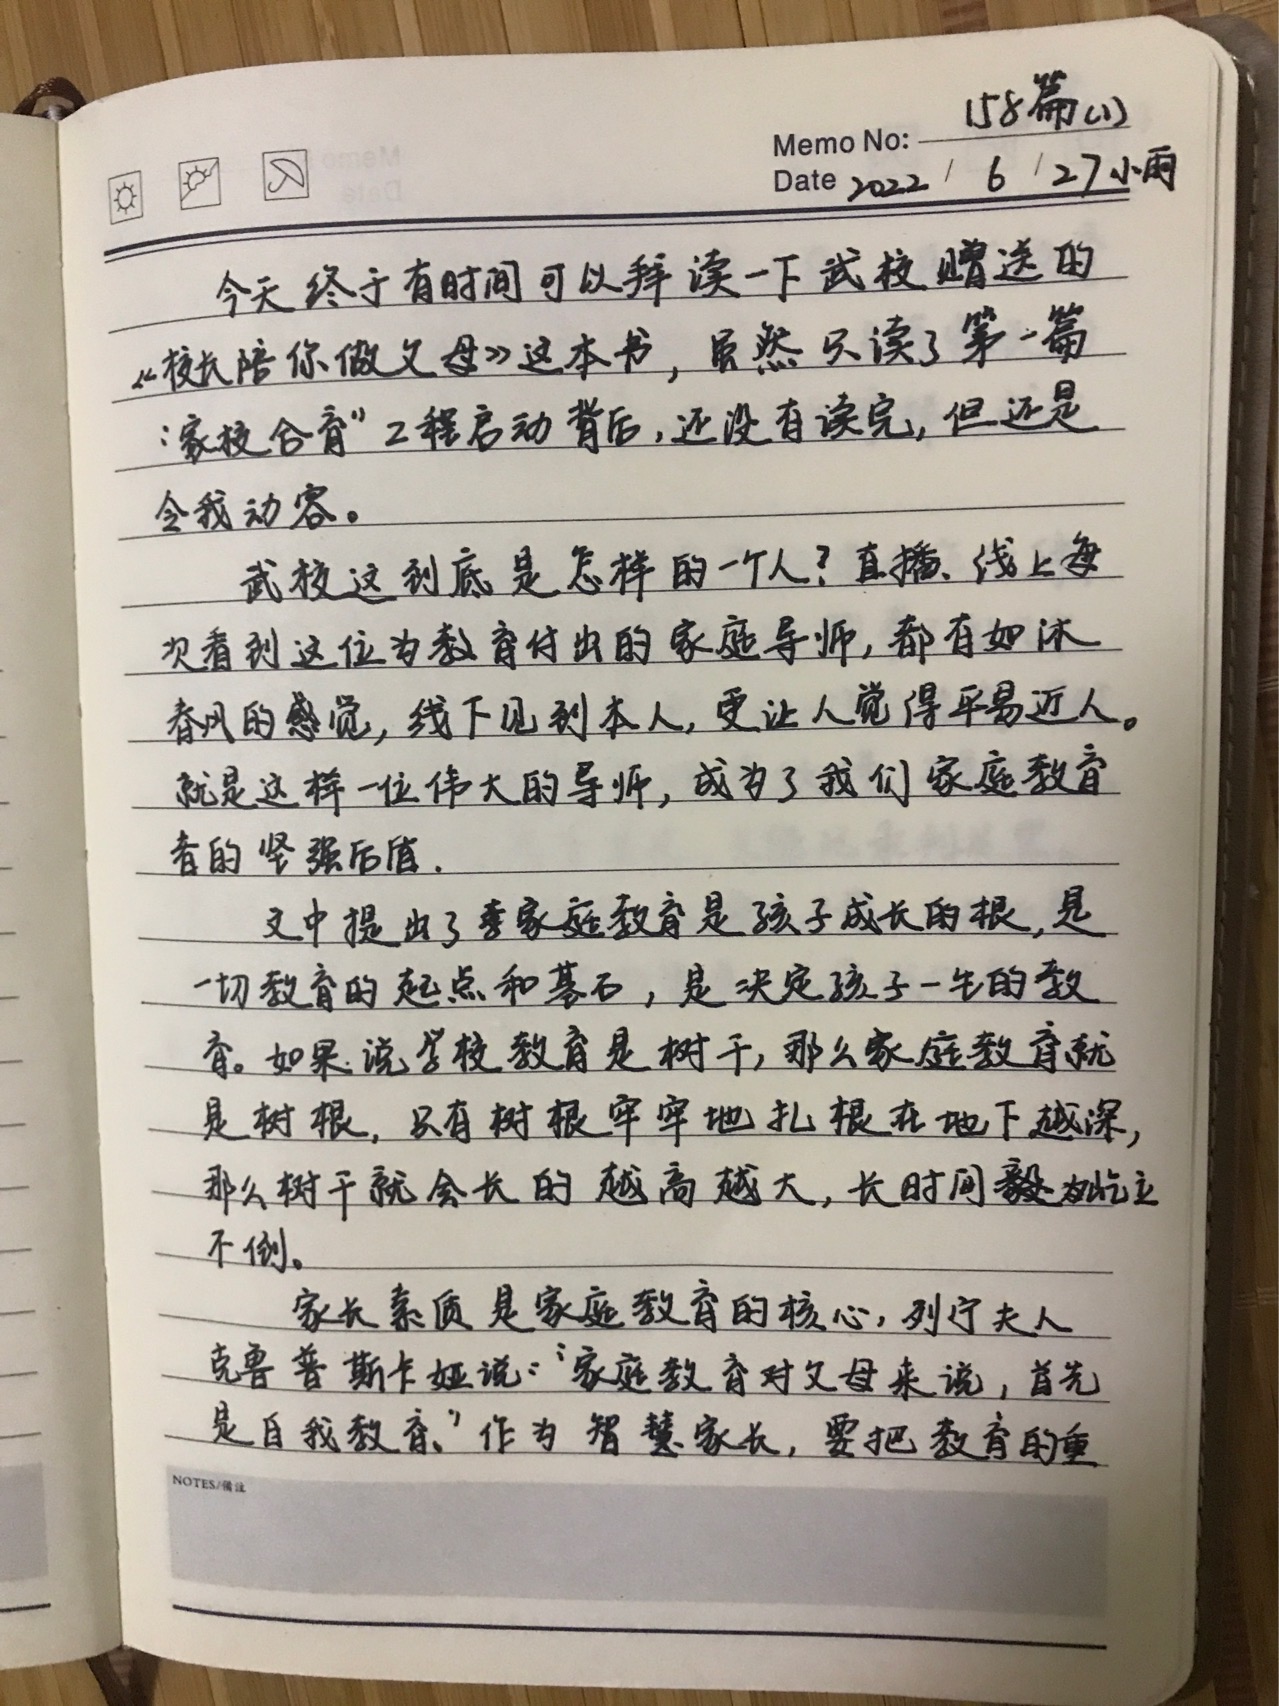 Memo No: 158篇(1)
Date 2022 / 6 / 27 小雨
今天终于有时间可以拜读一下武校赠送的
《校长陪你做父母》这本书，虽然只读了第一篇
“家校合育”工程启动背后，还没有读完，但还是
令我动容。
武校这到底是怎样的一个人？直播、线上每
次看到这位为教育付出的家庭导师，都有如沐
春风的感觉，线下见到本人，更让人觉得平易近人。
就是这样一位伟大的导师，成为了我们家庭教育
者的坚强后盾.
文中提出了家庭教育是孩子成长的根，是
一切教育的起点和基石，是决定孩子一生的教
育。如果说学校教育是树干，那么家庭教育就
是树根，只有树根牢牢地扎根在地下越深，
那么树干就会长的越高越大，长时间屹立
不倒。
家长素质是家庭教育的核心，列宁夫人
克鲁普斯卡娅说：“家庭教育对父母来说，首先
是自我教育。”作为智慧家长，要把教育的重
NOTES/備注